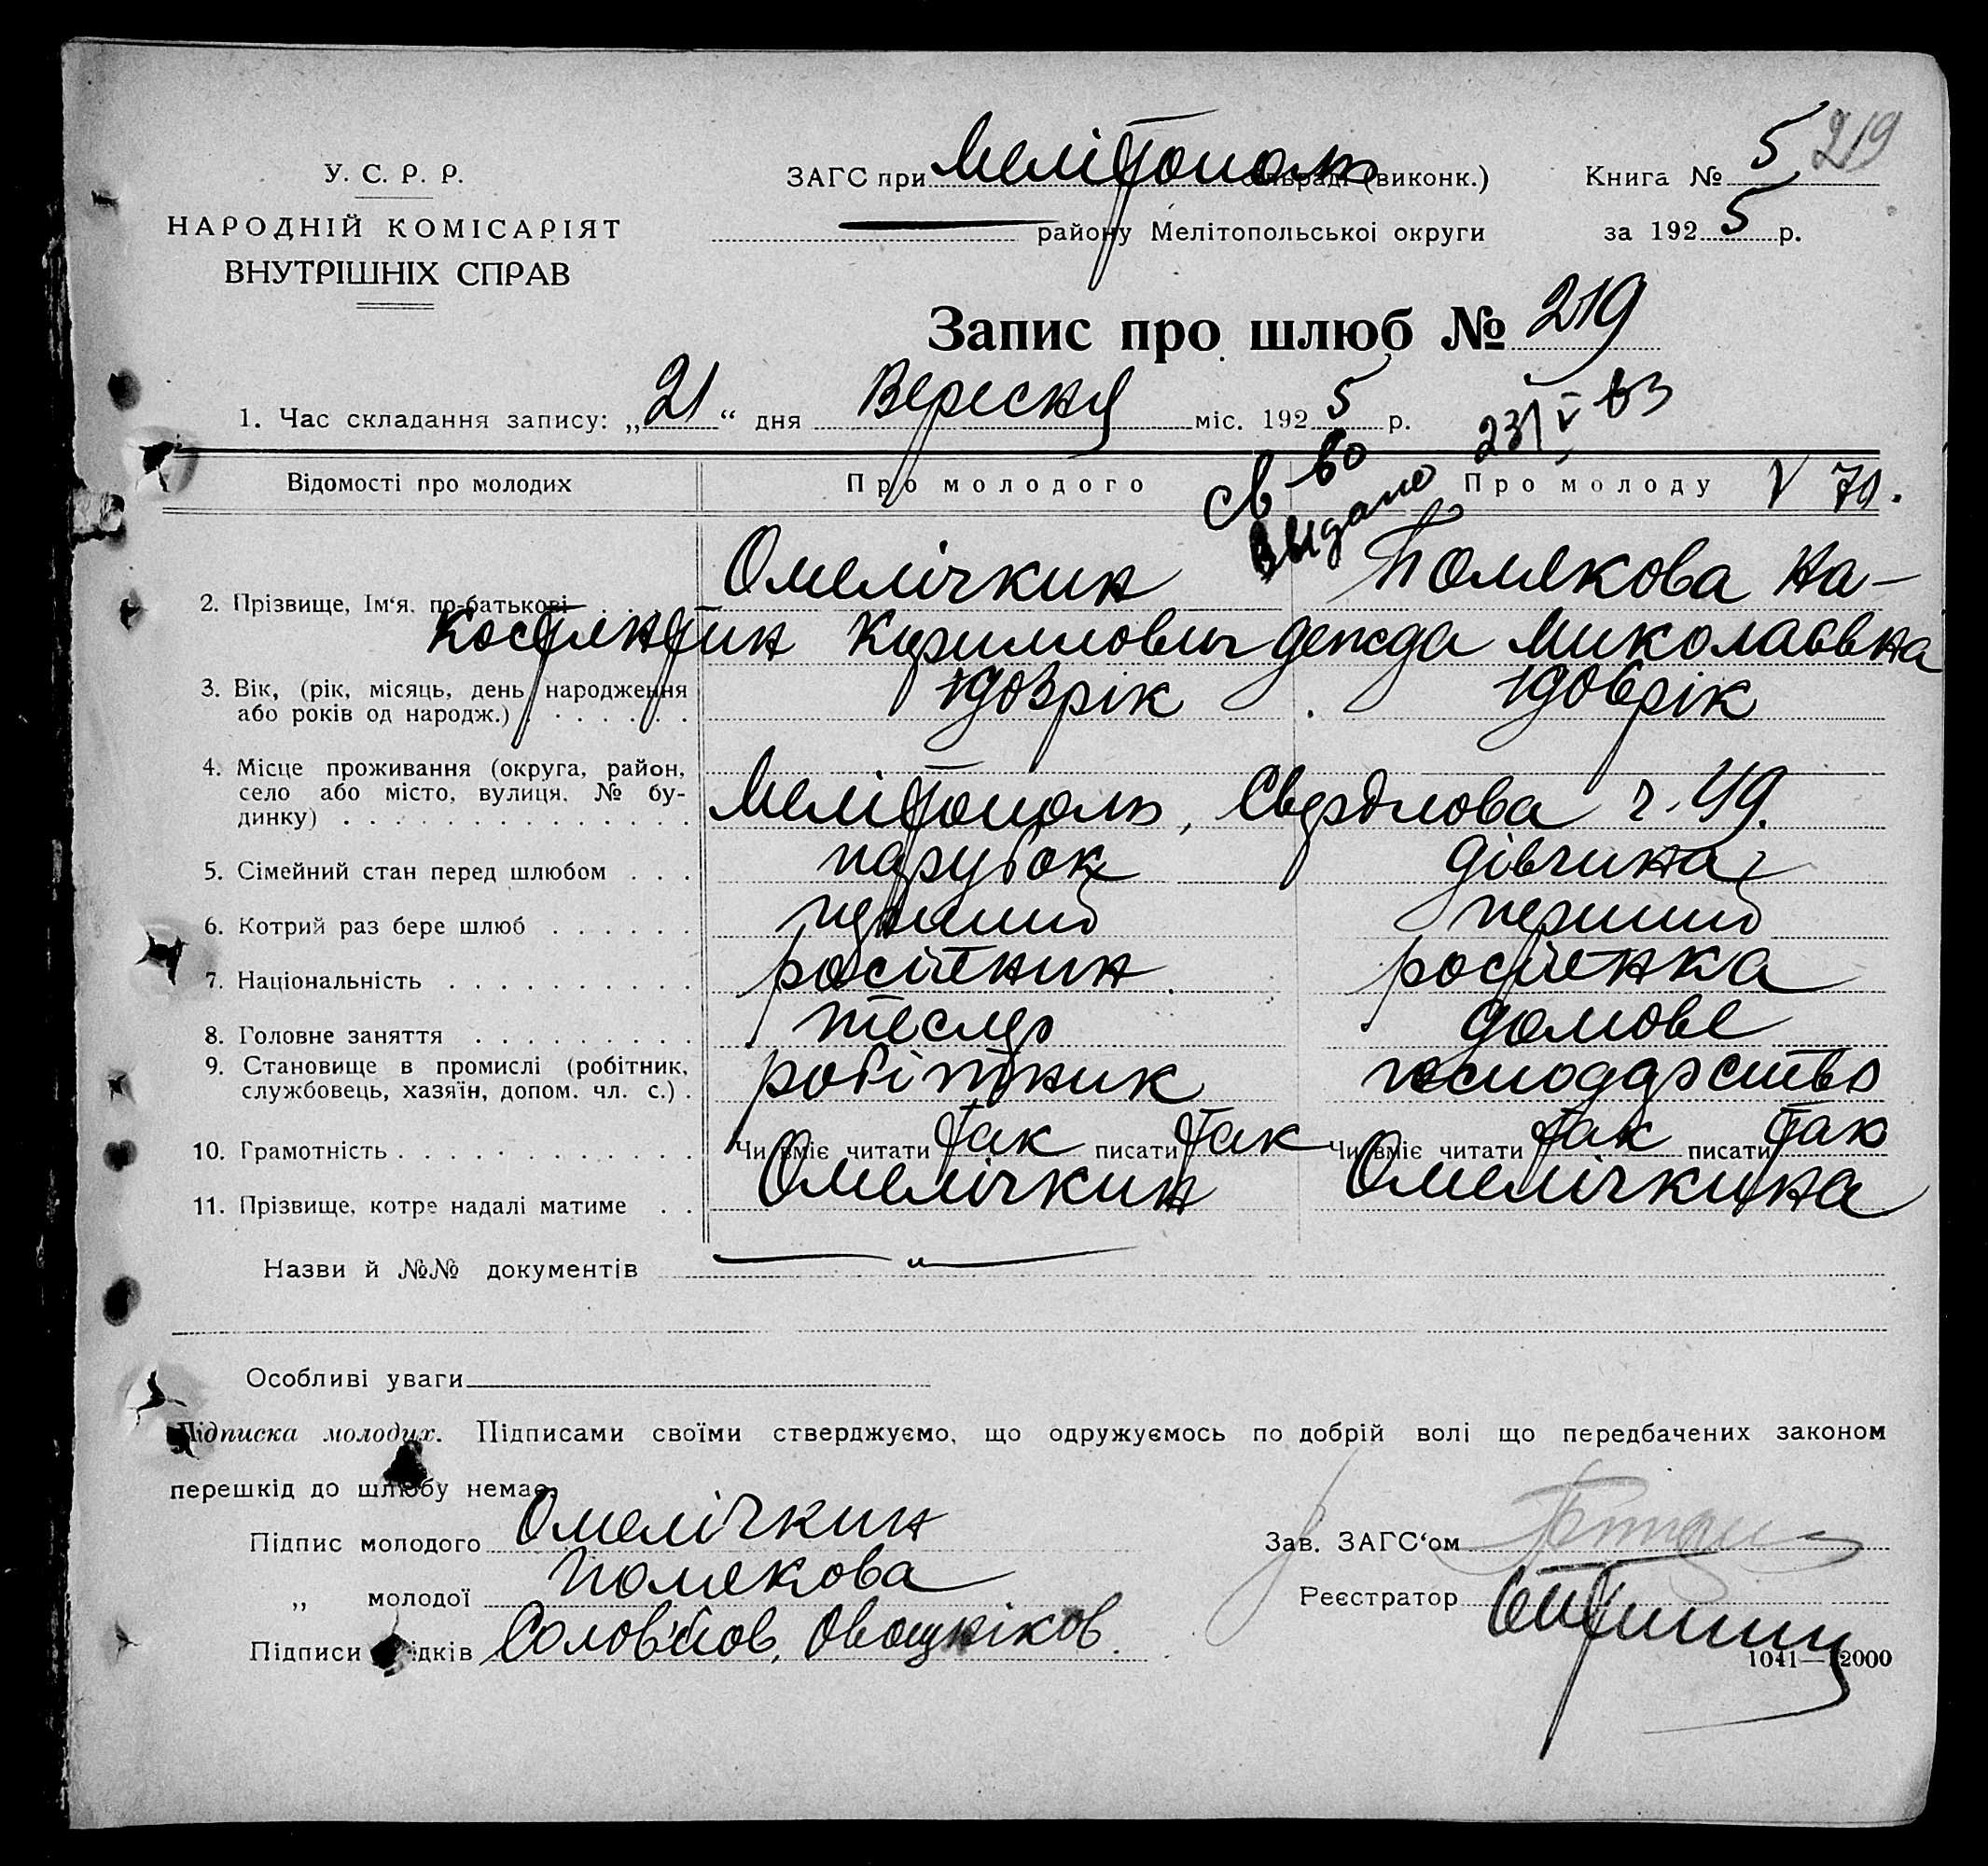 219
У. С. Р. Р.
НАРОДНІЙ КОМІСАРІЯТ
ВНУТРІШНІХ СПРАВ
ЗАГС при Мелітополь сільраді (виконк.)
Книга № 5
району Мелітопольської округи
за 1925 р.
Запис про шлюб № 219
1. Час складання запису: „21“ дня Вересня міс. 1925 р.
св-во
выдано
23/V 63
Відомості про молодих Про молодого Про молоду V 70.
2. Прізвище, Ім'я, по-батькові Омелічкин Полякова На-
Костянтин Кирилловыч дежда Миколаєвна
3. Вік, (рік, місяць, день народження
або років од народж.) 1903 рік 1906 рік
4. Місце проживання (округа, район,
село або місто, вулиця, № бу-
динку) Мелітополь, Свердлова ч. 49.
5. Сімейний стан перед шлюбом парубок дівчина
6. Котрий раз бере шлюб перший перший
7. Національність росіянин росіянка
8. Головне заняття тесляр домове
9. Становище в промислі (робітник,
службовець, хазяїн, допом. чл. с.) робітник господарство
10. Грамотність Чи вміє читати так писати так Чи вміє читати так писати так
11. Прізвище, котре надалі матиме Омелічкин Омелічкина
Назви й №№ документів
Особливі уваги
Підписка молодих. Підписами своїми стверджуємо, що одружуємось по добрій волі що передбачених законом
перешкід до шлюбу немає.
Підпис молодого Омелічкин
„ молодої Полякова
Підписи свідків Соловйов, Овощніков.
Зав. ЗАГС'ом
Реєстратор
1041—12000